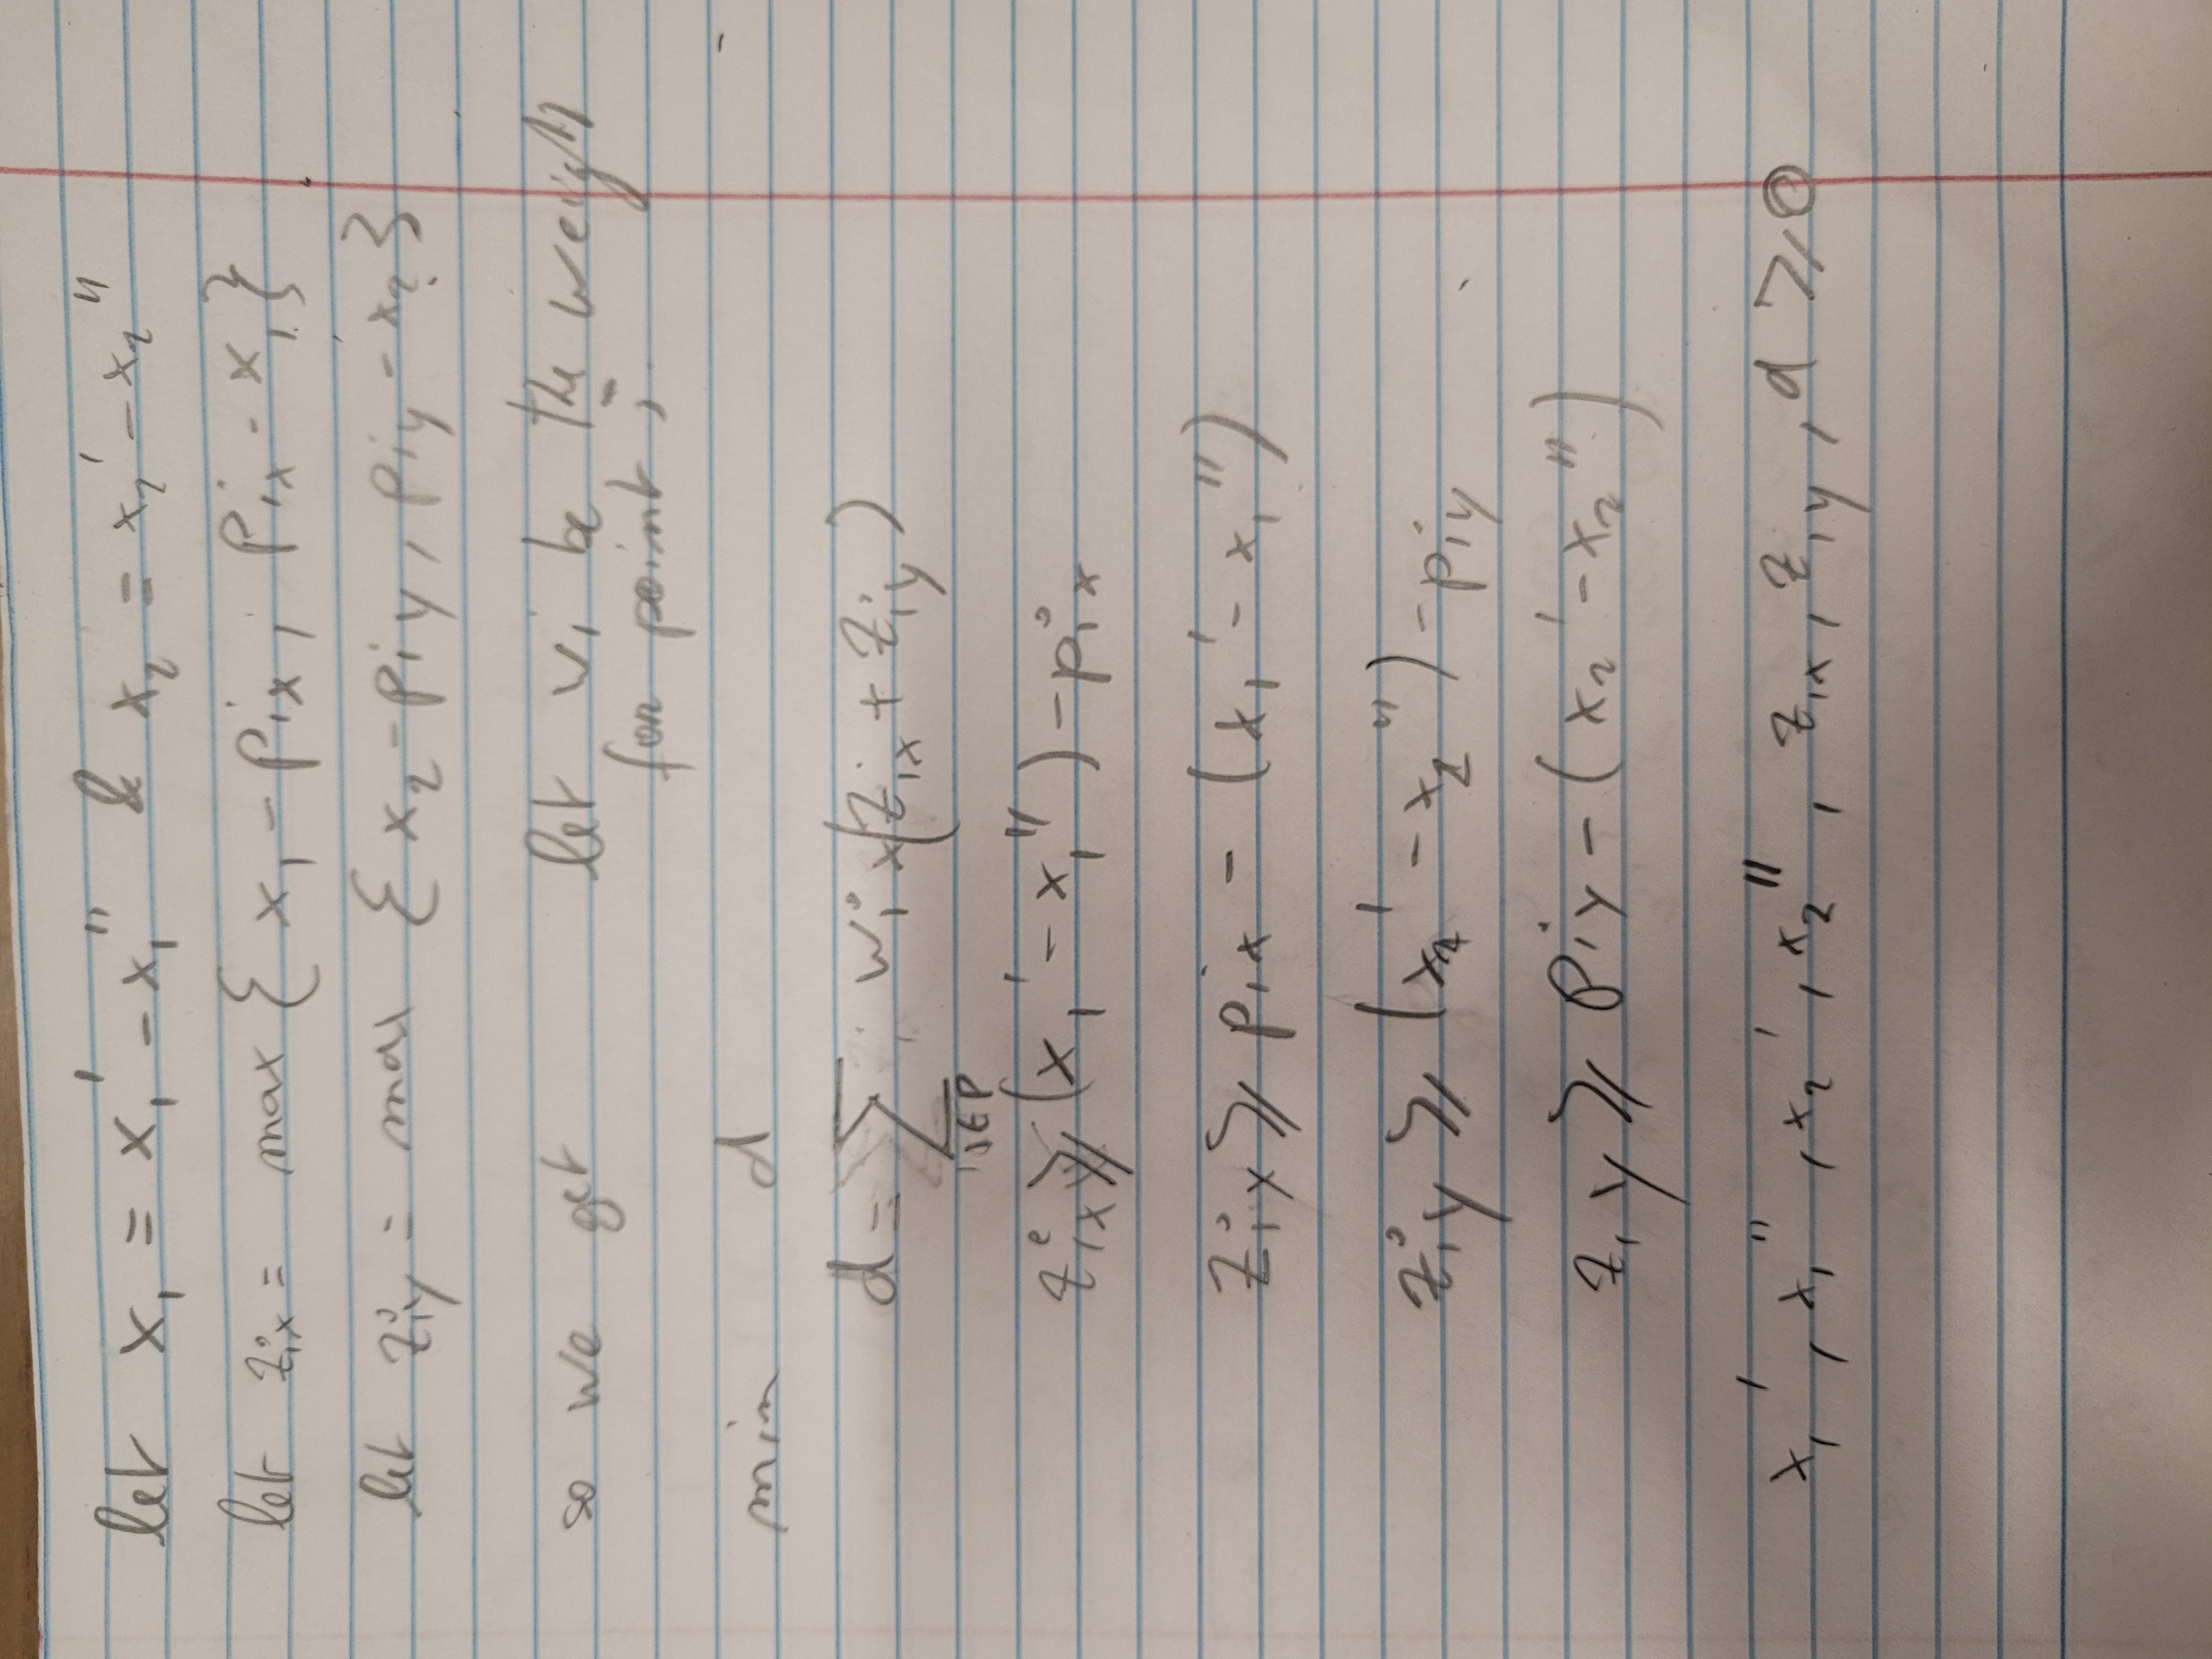 let x₁ = x₁' - x₁'' & x₂ = x₂' - x₂''
let zᵢₓ = max { x₁ - pᵢₓ ; pᵢₓ - x₁ }
let zᵢy = max { x₂ - pᵢy , pᵢy - x₂ }
so we get let wᵢ be the weigh
for point i.
min d
d = ∑ wᵢ x (zᵢₓ + zᵢy)
i∈P
zᵢₓ ⩾ (x₁' - x₁'') - pᵢₓ
zᵢₓ ⩾ pᵢₓ - (x₁' - x₁'')
zᵢy ⩾ (x₂' - x₂'') - pᵢy
zᵢy ⩾ pᵢy - (x₂' - x₂'')
x₁' , x₁'' , x₂' , x₂'' , zᵢₓ , zᵢy , d ⩾ 0